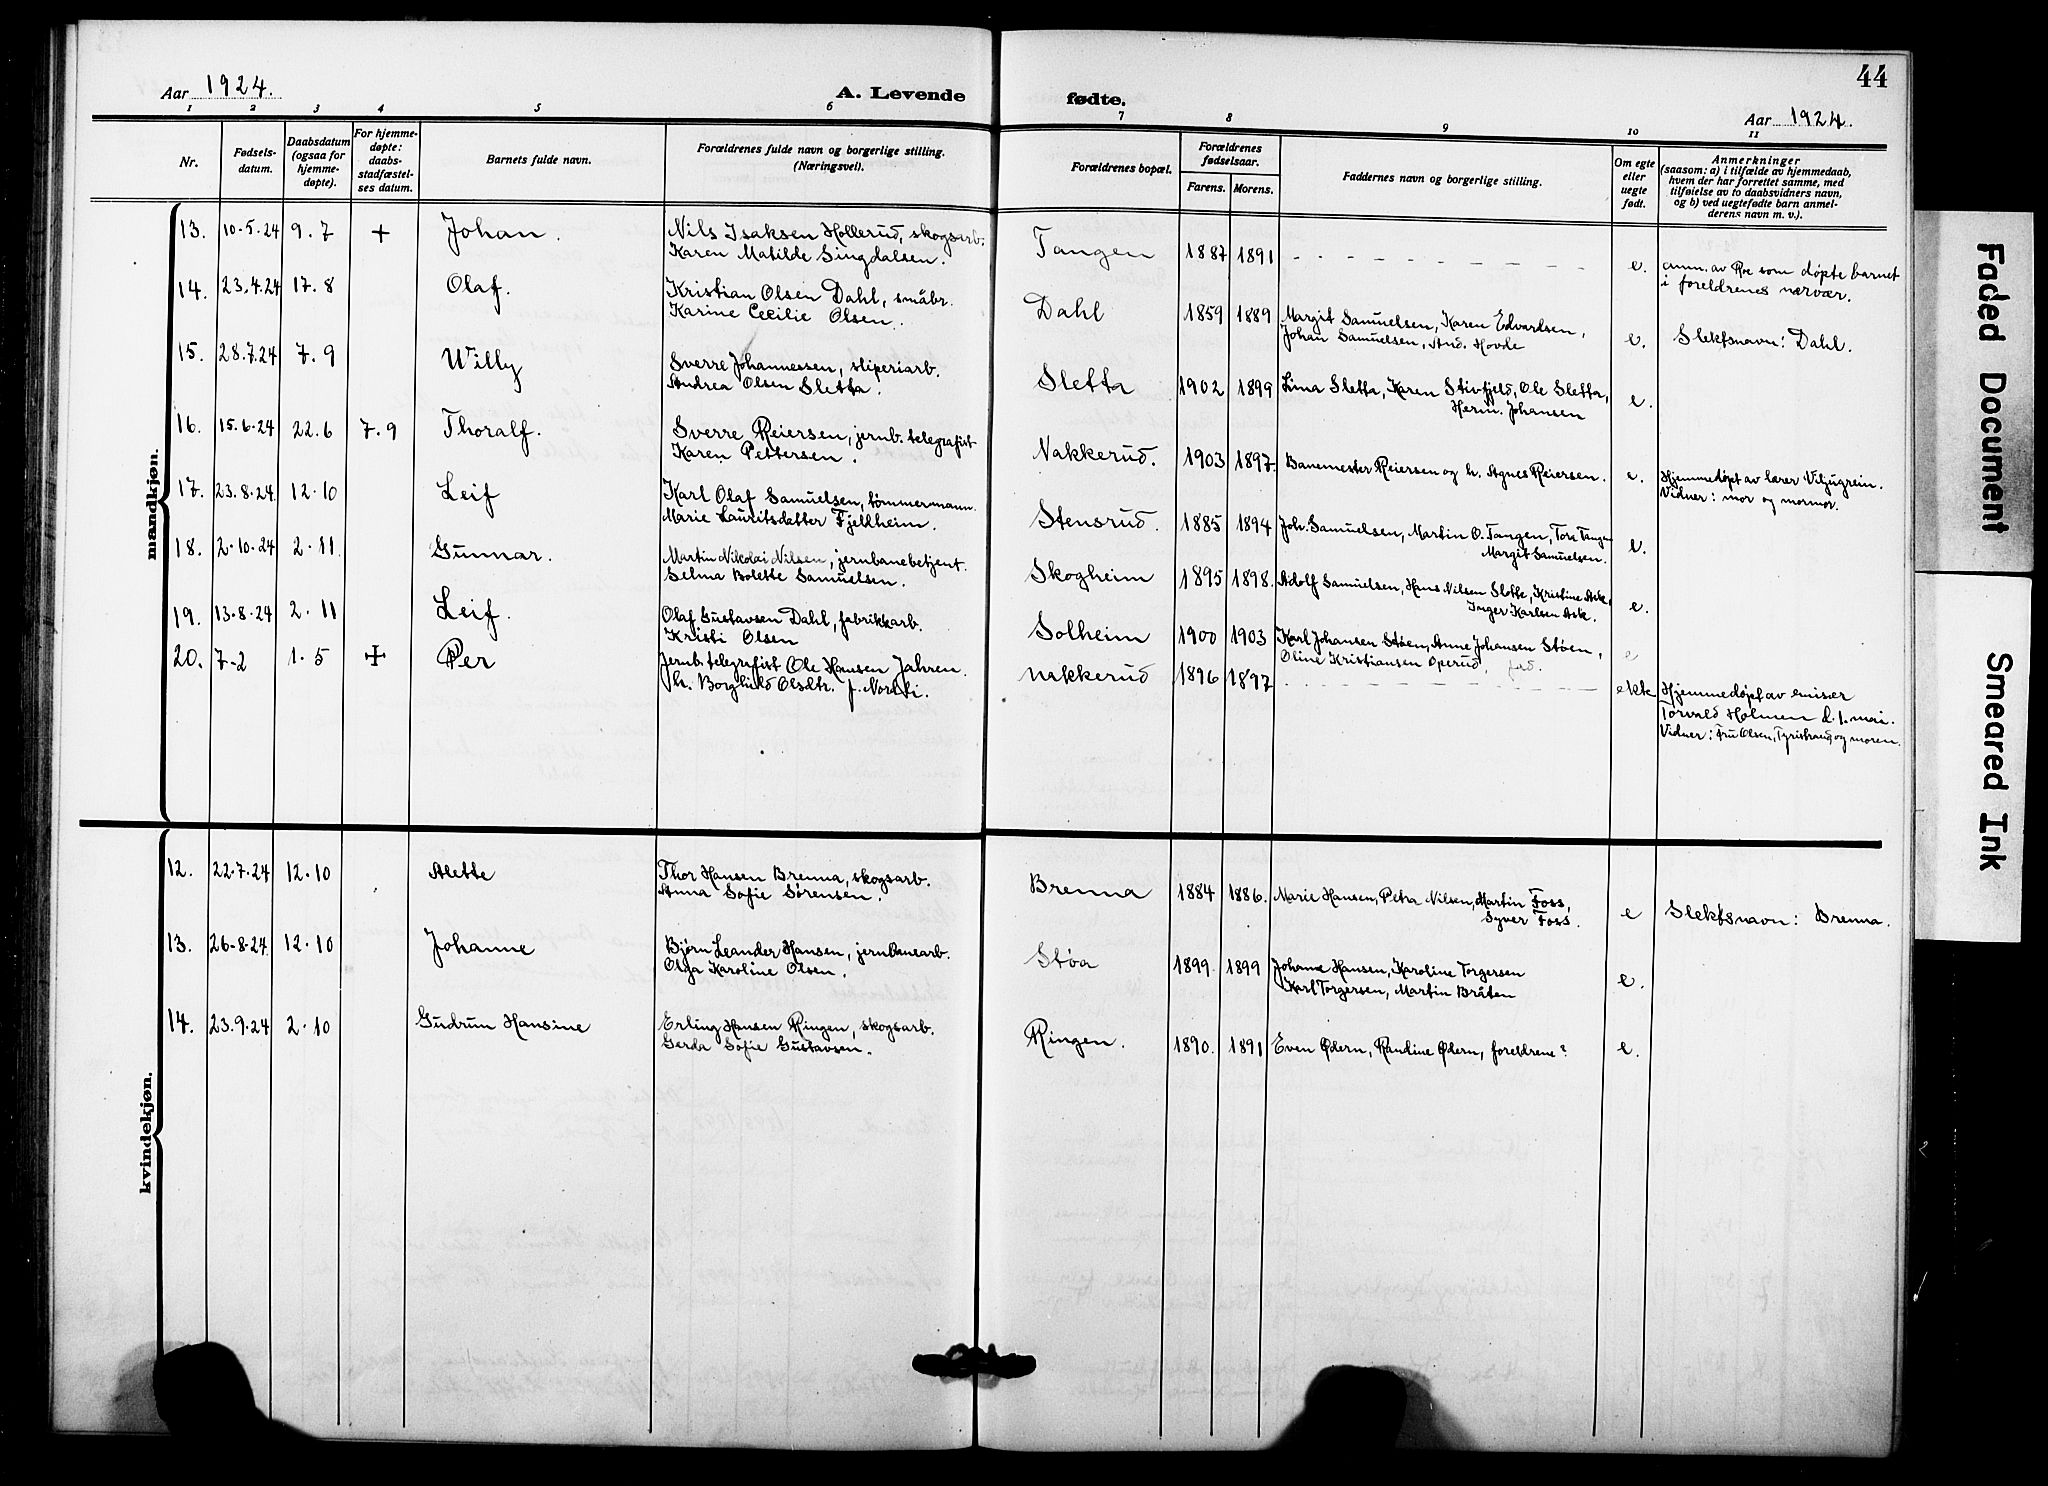 44
Aar 1924.
A. Levende fødte.
Aar 1924.
1 2 3 4 5 6 7 8 9 10 11
Nr.
Fødsels-
datum.
Daabsdatum
(ogsaa for
hjemme-
døpte).
For hjemme-
døpte:
daabs-
stadfæstel-
ses datum.
Barnets fulde navn.
Forældrenes fulde navn og borgerlige stilling.
(Næringsvei).
Forældrenes bopæl.
Forældrenes
fødselsaar.
Farens. Morens.
Faddernes navn og borgerlige stilling.
Om egte
eller
uegte
født.
Anmerkninger
(saasom: a) i tilfælde av hjemmedaab,
hvem der har forrettet samme, med
tilføielse av to daabsvidners navn,
og b) ved uegtefødte barn anmel-
derens navn m. v.).
mandkjøn.
13. 10-5-24 9.7 + Johan. Nils Isaksen Hollerud, skogsarb. Tangen 1887 1891 e. anm. av Roe som døpte barnet
Karen Matilde Singdalsen. i foreldrenes nærvær.
14. 23.4.24 17.8 Olaf. Kristian Olsen Dahl, småbr. Dahl 1859 1889 Margit Samuelsen, Karen Edvardsen, e. Slektsnavn: Dahl.
Karine Cecilie Olsen. Johan Samuelsen, And. Hovde
15. 28.7.24 7.9 Willy Sverre Johannessen, sliperiarb. Sletta 1902 1899 Lina Sletta, Karen Stivfjeld, Ole Sletta, e.
Andrea Olsen Sletta. Herm. Johansen
16. 15.6.24 22.6 7.9 Thoralf. Sverre Reiersen, jernb. telegrafist Nakkerud. 1903 1897. Banemester Reiersen og h. Agnes Reiersen. e. Hjemmedøpt av lærer Viljugrein.
Karen Pettersen. Vidner: mor og mormor.
17. 23.8.24 12.10 Leif Karl Olaf Samuelsen, tømmermann. Stensrud. 1885 1894 Joh. Samuelsen, Martin O. Tangen, Tora Tangen e.
Marie Lauritsdatter Fjellheim. Margit Samuelsen.
18. 2.10.24 2.11 Gunnar. Martin Nikolai Nilsen, jernbanebetjent. Skogheim 1895 1898. Adolf Samuelsen, Hans Nilsen Slotte, Kristine Ask, e.
Selma Bolette Samuelsen. Inger Karlsen Ask.
19. 13.8.24 2.11 Leif. Olaf Gustavsen Dahl, fabrikkarb. Solheim 1900 1903 Karl Johansen Støen, Anne Johansen Støen, e
Kristi Olsen Oline Kristiansen Operud. fad.
20. 7-2 1.5 + Per Jernb. telegrafist Ole Hansen Jahren. Nakkerud 1896 1897 ekte Hjemmedøpt av emisær
h. Borghild Olsdtr. f. Nordli. Torvald Holmen d. 1. mai.
Vidner: Fru Olsen, Tyristrand og moren.
kvindekjøn.
12. 22.7.24 12.10 Alette Thor Hansen Brenna, skogsarb. Brenna 1884 1886. Marie Hansen, Petra Nilsen, Martin Foss, e Slektsnavn: Brenna.
Anna Sofie Sørensen. Syver Foss.
13. 26.8.24 12.10 Johanne Bjørn Leander Hansen, jernbanearb. Støa 1899. 1899 Johanne Hansen, Karoline Torgersen e.
Olga Karoline Olsen. Karl Torgersen, Martin Bråten
14. 23.9.24 2.10 Gudrun Hansine Erling Hansen Ringen, skogsarb. Ringen. 1890. 1891 Even Ødern, Randine Ødern, foreldrene? e.
Gerda Sofie Gustavsen.
Faded Document
Smeared Ink